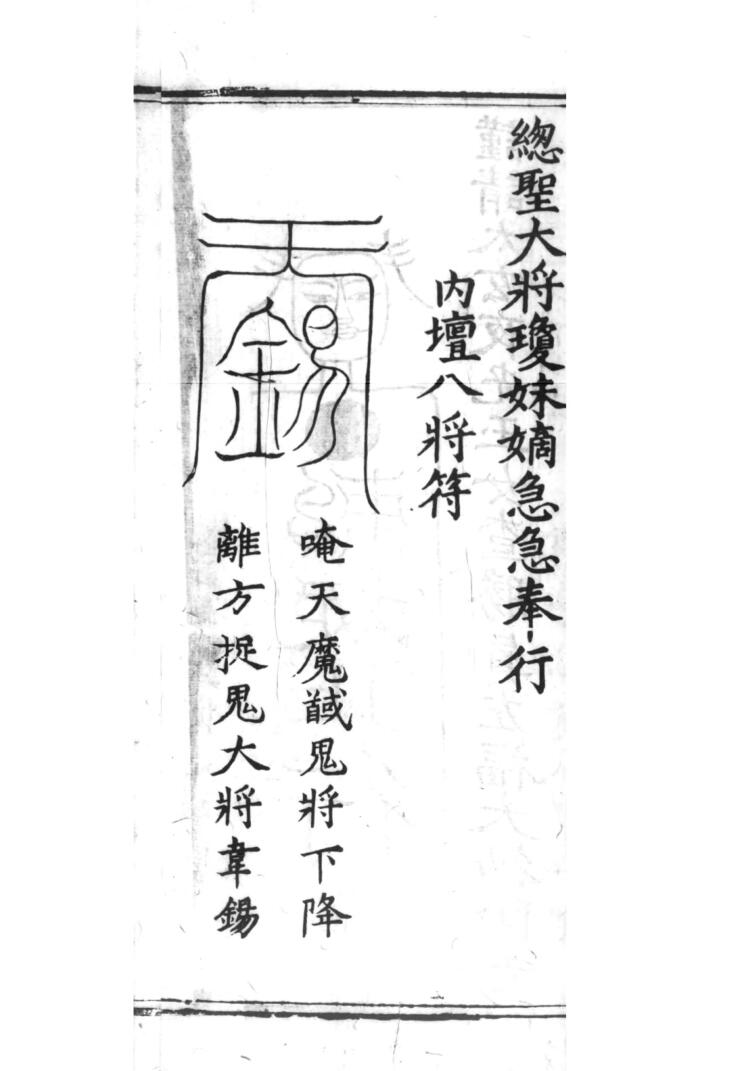 總聖大將瓊妹嫡急急奉行
內壇八將符
唵天魔馘鬼將下降
離方捉鬼大將韋錫